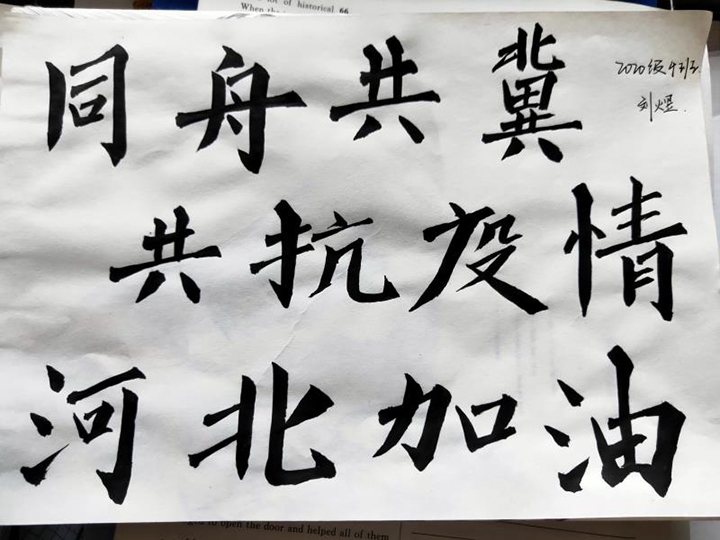 of historical 66
When the
同舟共冀
2020级9班
刘煜
共抗疫情
河北加油
to open the door and helped all of them